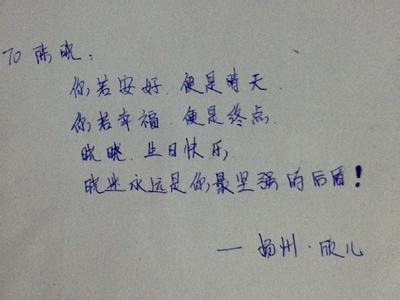 TO 陈晓:
你若安好.便是晴天.
你若幸福.便是终点.
晓晓.生日快乐
晓迷永远是你最坚强的后盾!
— 扬州·欣儿